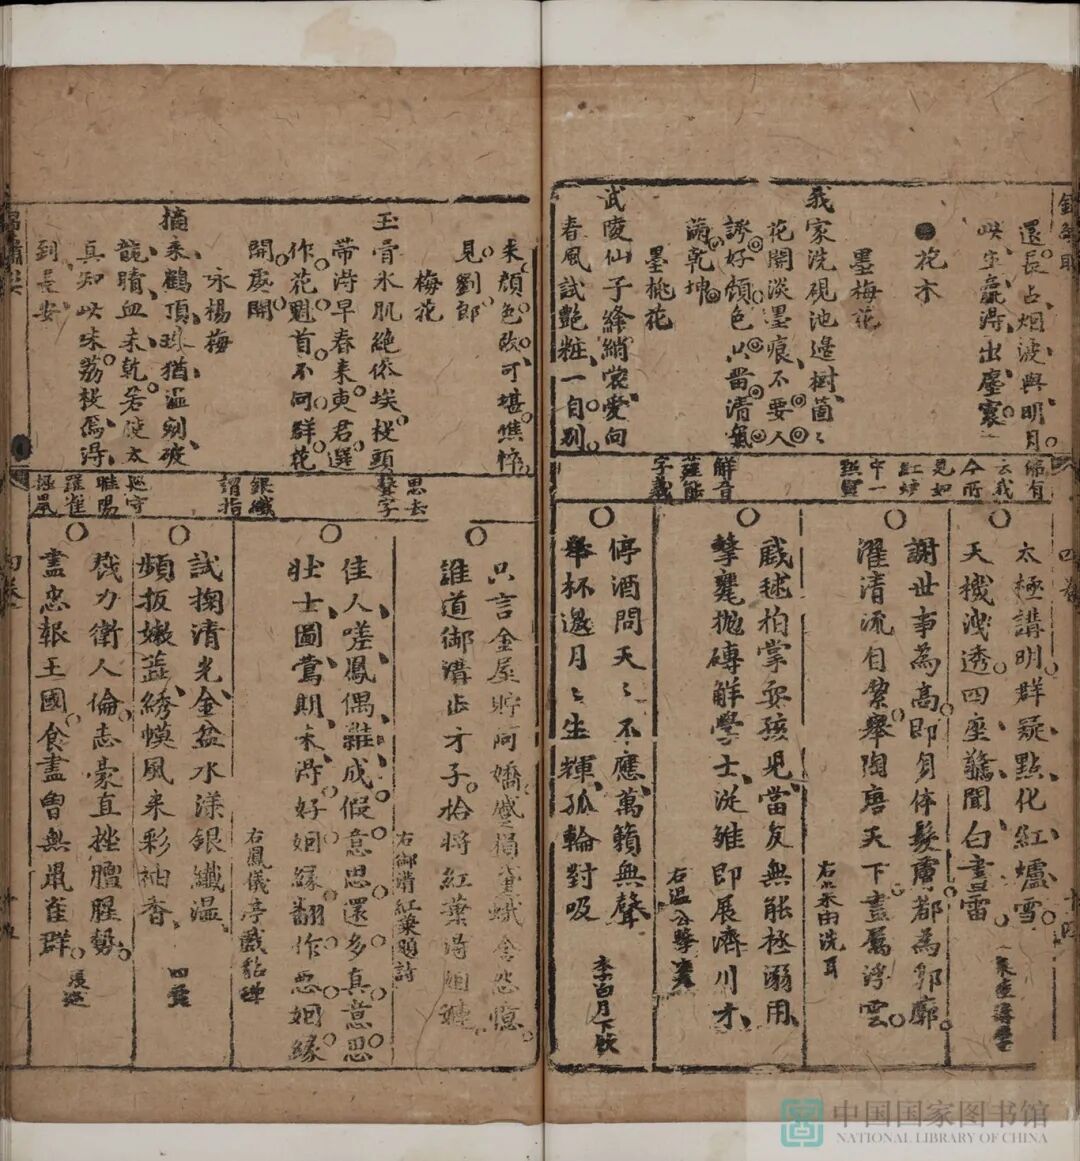 還長占烟波與明月
此生贏得出塵寰
花木
墨梅花
我家洗硯池邊樹箇〻
花開淡墨痕不要人
誇好顏色只留清氣
滿乾坤
墨桃花
武陵仙子絳綃裳愛向
春風試艷粧一自別
解音
蓬能
字義
太極講明群疑點化紅爐雪
天機洩透四座驚聞白晝雷
謝世事為高即身体髮膚都為郛廓
濯清流自潔舉陶唐天下盡屬浮雲
右巢由洗耳
戲毬拍掌衆孩兒當友無能拯溺用
擊甕拋磚鮮學士從雖即展濟川才
右温公擊甕
停酒問天〻不應萬籟無聲
舉杯邀月〻生輝孤輪對吸
李白月下飲
来顏色改可堪憔悴
見劉郎
梅花
玉骨氷肌絶俗埃枝頭
帯得早春来東君選
作花魁首不同群花
開處開
咏楊梅
摘来鶴頂珠猶溫剜破
龍睛血未乾若使太
真知此味荔枝焉得
到長安
思去
聲字
銀纖
謂指
巡守
睢陽
羅雀
掘鼠
只言金屋貯阿嬌
誰道御溝止才子拾將紅葉得姻
右御溝紅葉題詩
佳人嗟鳳偶難成假意思還多真意思
壯士圖鴛期未得好姻緣翻作惡姻緣
右鳳儀亭戲貂蟬
試掬清光金盆水漾銀纖温
頻扳嫩蕋綉幙風来彩袖香
四景
戮力衛人倫志豪直挫膻腥勢
盡忠報王國食盡曽無鼠雀群
張巡